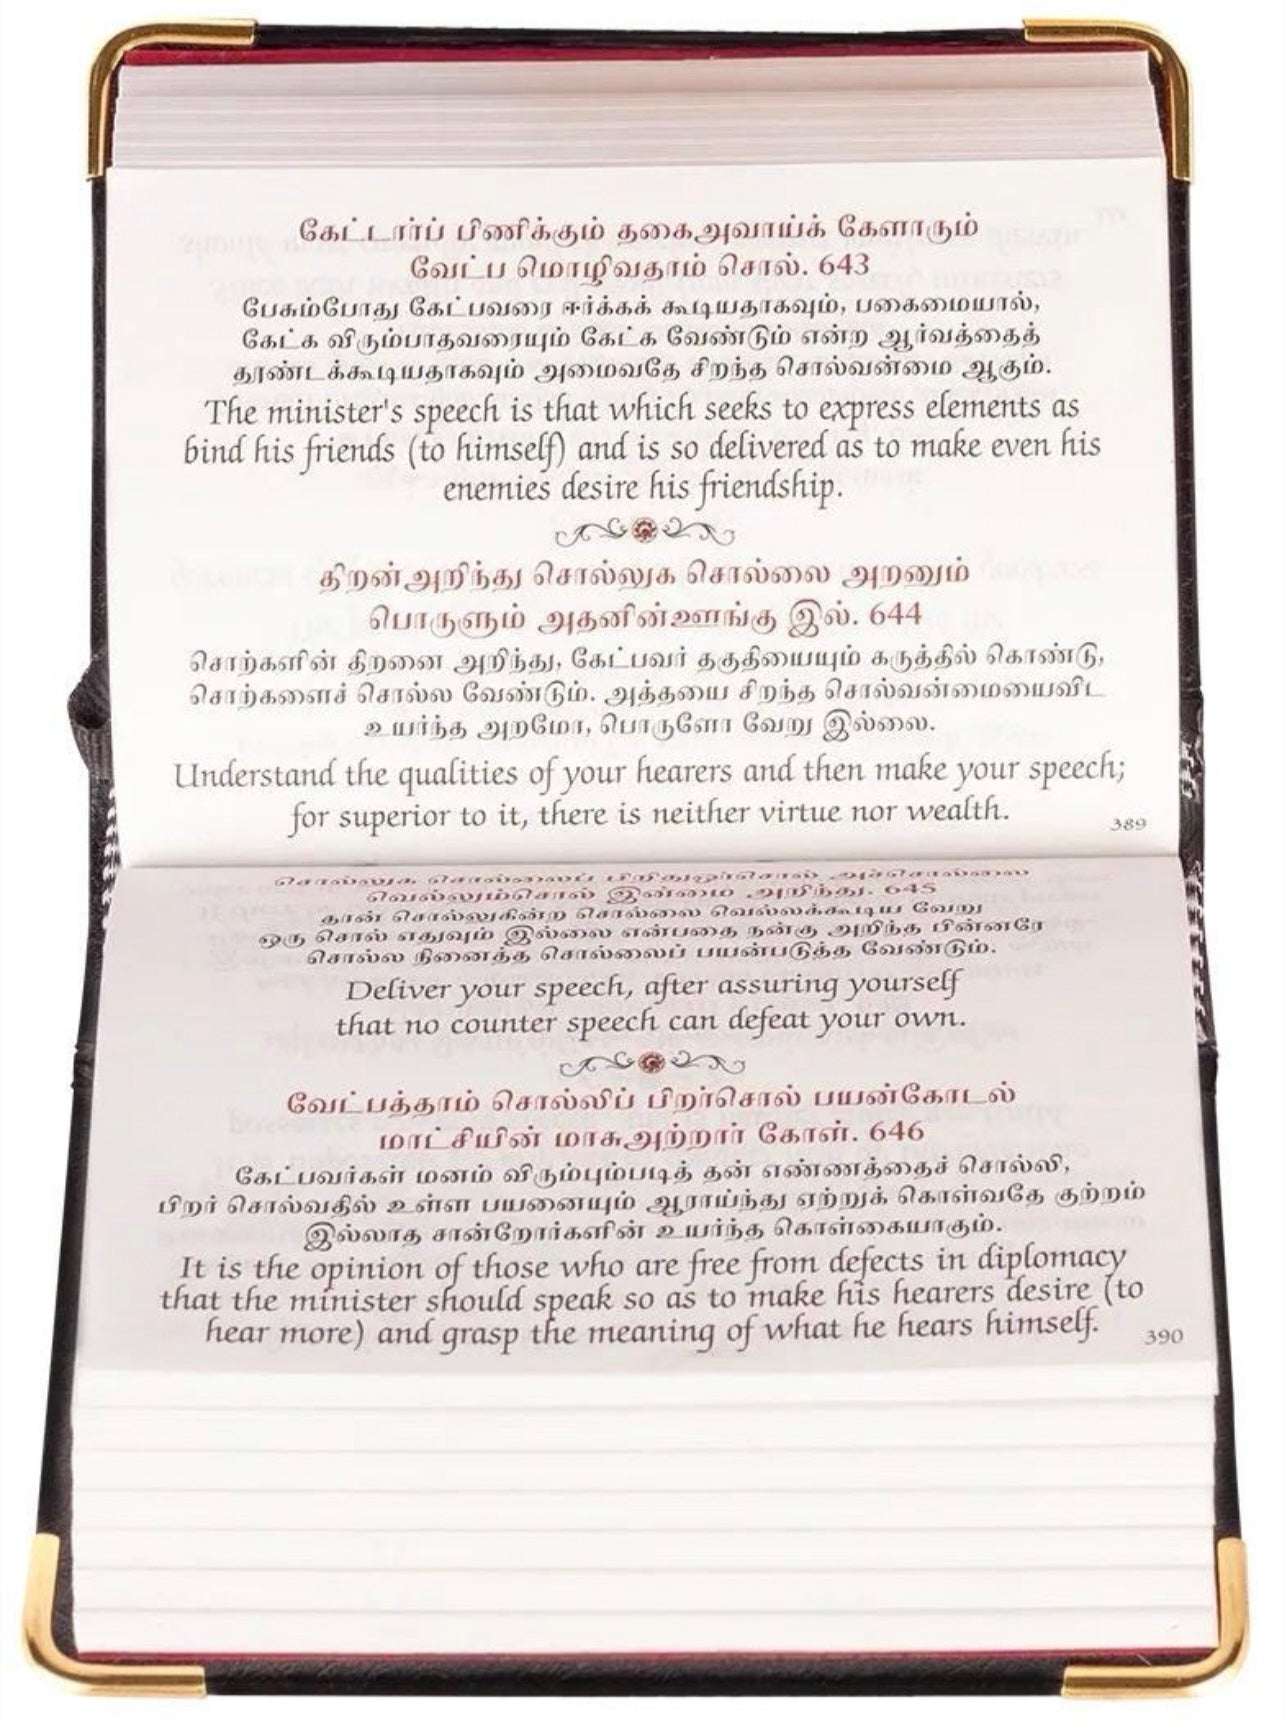 கேட்டார்ப் பிணிக்கும் தகைஅவாய்க் கேளாரும்
வேட்ப மொழிவதாம் சொல். 643
பேசும்போது கேட்பவரை ஈர்க்கக் கூடியதாகவும், பகைமையால்,
கேட்க விரும்பாதவரையும் கேட்க வேண்டும் என்ற ஆர்வத்தைத்
தூண்டக்கூடியதாகவும் அமைவதே சிறந்த சொல்வன்மை ஆகும்.
The minister's speech is that which seeks to express elements as
bind his friends (to himself) and is so delivered as to make even his
enemies desire his friendship.
திறன்அறிந்து சொல்லுக சொல்லை அறனும்
பொருளும் அதனின்ஊங்கு இல். 644
சொற்களின் திறனை அறிந்து, கேட்பவர் தகுதியையும் கருத்தில் கொண்டு,
சொற்களைச் சொல்ல வேண்டும். அத்தயை சிறந்த சொல்வன்மையைவிட
உயர்ந்த அறமோ, பொருளோ வேறு இல்லை.
Understand the qualities of your hearers and then make your speech;
for superior to it, there is neither virtue nor wealth.
389
சொல்லுக சொல்லைப் பிறிதுஓர்சொல் அச்சொல்லை
வெல்லும்சொல் இன்மை அறிந்து. 645
தான் சொல்லுகின்ற சொல்லை வெல்லக்கூடிய வேறு
ஒரு சொல் எதுவும் இல்லை என்பதை நன்கு அறிந்த பின்னரே
சொல்ல நினைத்த சொல்லைப் பயன்படுத்த வேண்டும்.
Deliver your speech, after assuring yourself
that no counter speech can defeat your own.
வேட்பத்தாம் சொல்லிப் பிறர்சொல் பயன்கோடல்
மாட்சியின் மாசுஅற்றார் கோள். 646
கேட்பவர்கள் மனம் விரும்பும்படித் தன் எண்ணத்தைச் சொல்லி,
பிறர் சொல்வதில் உள்ள பயனையும் ஆராய்ந்து ஏற்றுக் கொள்வதே குற்றம்
இல்லாத சான்றோர்களின் உயர்ந்த கொள்கையாகும்.
It is the opinion of those who are free from defects in diplomacy
that the minister should speak so as to make his hearers desire (to
hear more) and grasp the meaning of what he hears himself.
390